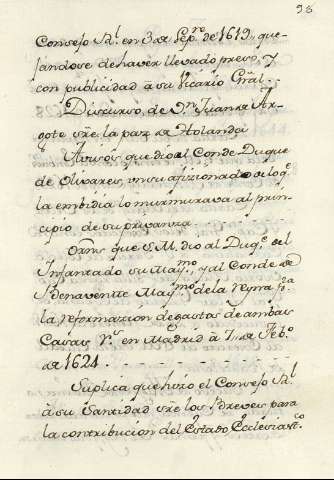 98
Consejo Rl. en 3 de Sepre. de 1619,, que-
jandose de haver llevado preso, y
con publicidad a su Vicario Gral..
Discurso de Dn. Juan de Ar-
gote sre. la paz de Holanda
Avisos que dio al Conde Duque
de Olivares, un su afizionado de loq.e
la embidia lo murmurava al prin-
cipio de su privanza
Orns. que S. M. dio al Duq.e del
Infantado su Maymo. y al Conde de
Benavente Maymo. de la Reyna pa.
la reformazion de gastos de ambas
Casas Rs. en Madrid à 7,, de Febo.
de 1624 . - - - - - - - -
Suplica que hizo el Consejo Rl.
à su Santidad sre. los Breves para
la contribucion del Estado Ecclesiastco.